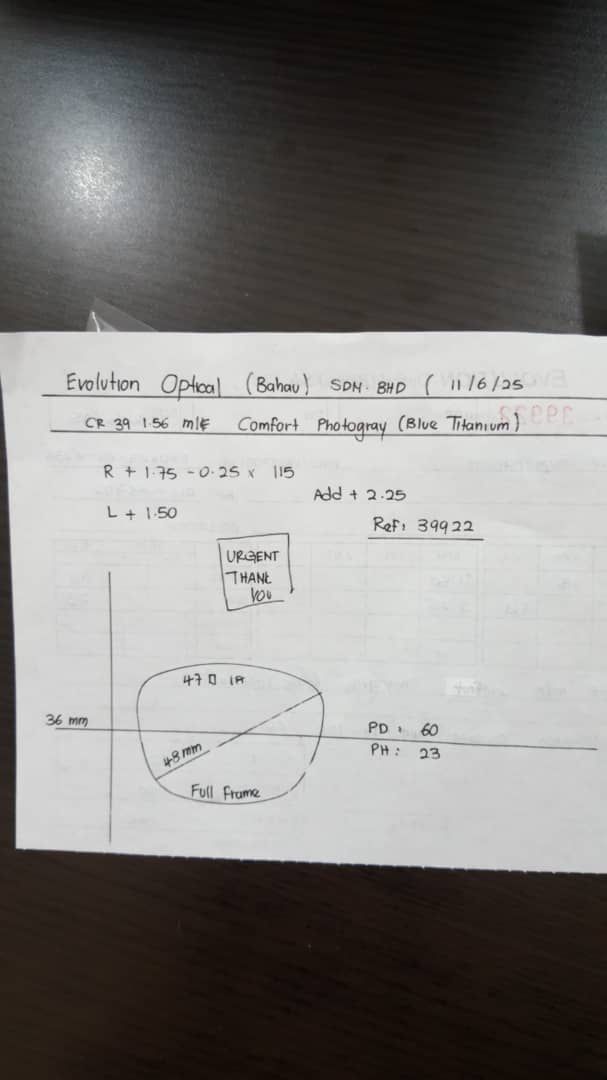 Evolution Optical (Bahau) SDN. BHD ( 11/6/25
CR 39 1.56 m/c Comfort Photogray (Blue Titanium)
R + 1.75 - 0.25 x 115
Add + 2.25
L + 1.50
Ref: 39922
URGENT
THANK
YOU
47 □ 18
36 mm
PD : 60
48mm
PH : 23
Full Frame